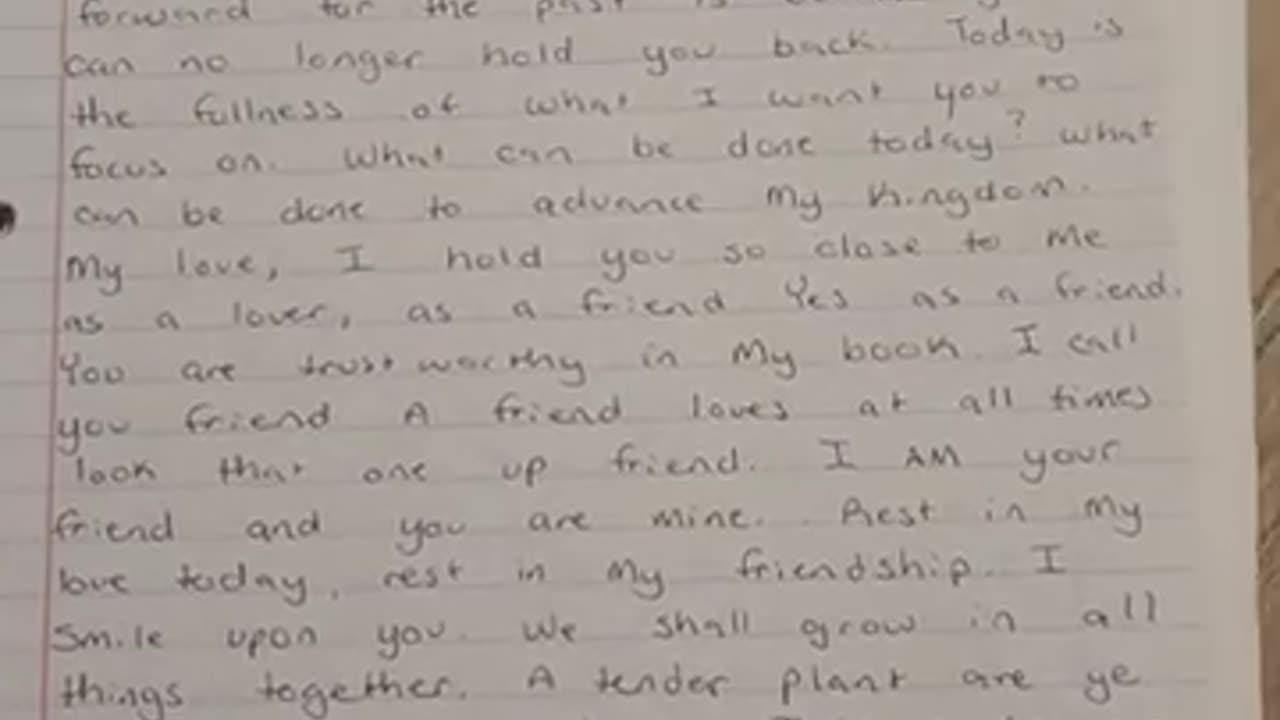 forward for the past is
can no longer hold you back. Today is
the fullness of what I want you to
focus on. What can be done today? what
can be done to advance My Kingdom.
My love, I hold you so close to Me
as a lover, as a friend Yes as a friend.
You are trustworthy in My book. I call
you friend A friend loves at all times
look that one up friend. I AM your
friend and you are mine. Rest in My
love today, rest in My friendship. I
smile upon you. We shall grow in all
things together. A tender plant are ye